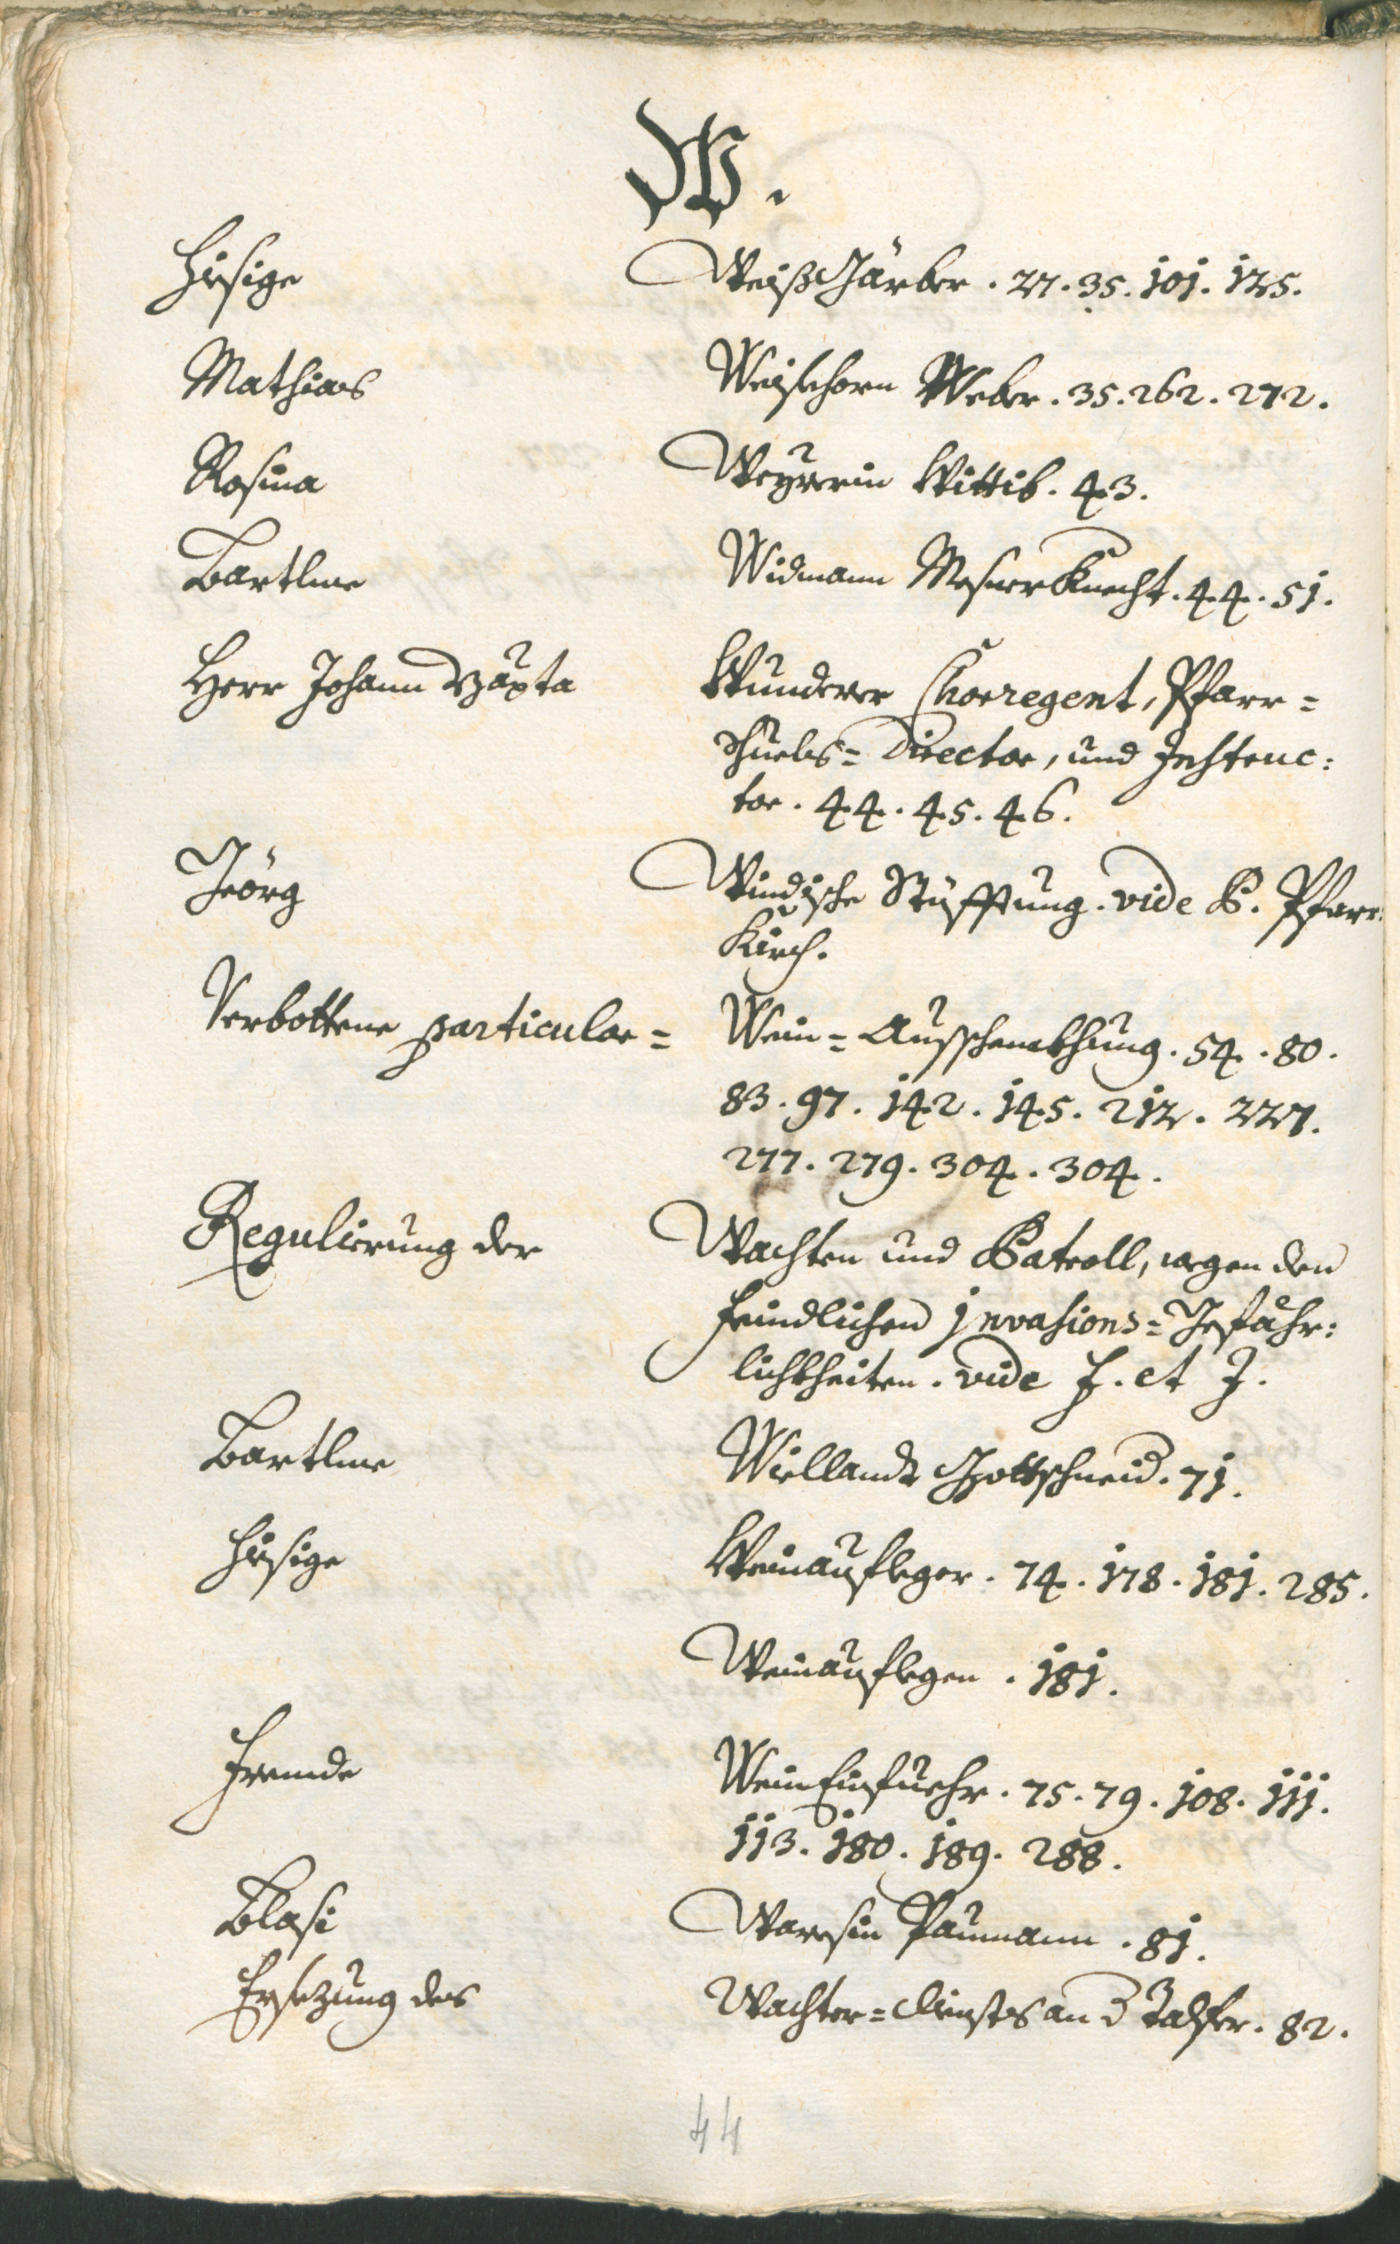 W.
Hiesige Weißgärber . 27. 35. 101. 125.
Mathias Weisehorn Weber . 35. 262. 272.
Rosina Weyrerin Wittib . 43.
Bartlme Widmann Mesnerknecht . 44. 51.
Herr Johann Bapta Wunderer Choregent, Pfarr=
Schuels= Director, und Instruc:
tor . 44. 45. 46.
Geörg Windische Stüfftung . vide P. Pfarr:
Kürch.
Verbottene particular= Wein= Ausschenckhung . 54. 80.
83. 97. 142. 145. 212. 227.
277. 279. 304. 304.
Regulierung der Wachten und Patroll, wegen den
feindlichen invasions= Gefähr:
lichkheiten . vide F. et I.
Bartlme Wiellandt Gottschneid . 71.
Hiesige Weinaufleger . 74. 178. 181. 285.
Weinauflegen . 181.
Fremde Wein Einfuehr . 75. 79. 108. 111.
113. 180. 189. 288.
Blasi Waresin Paumann . 81.
Ersezung des Wachter= diensts an d Talfer . 82.
44